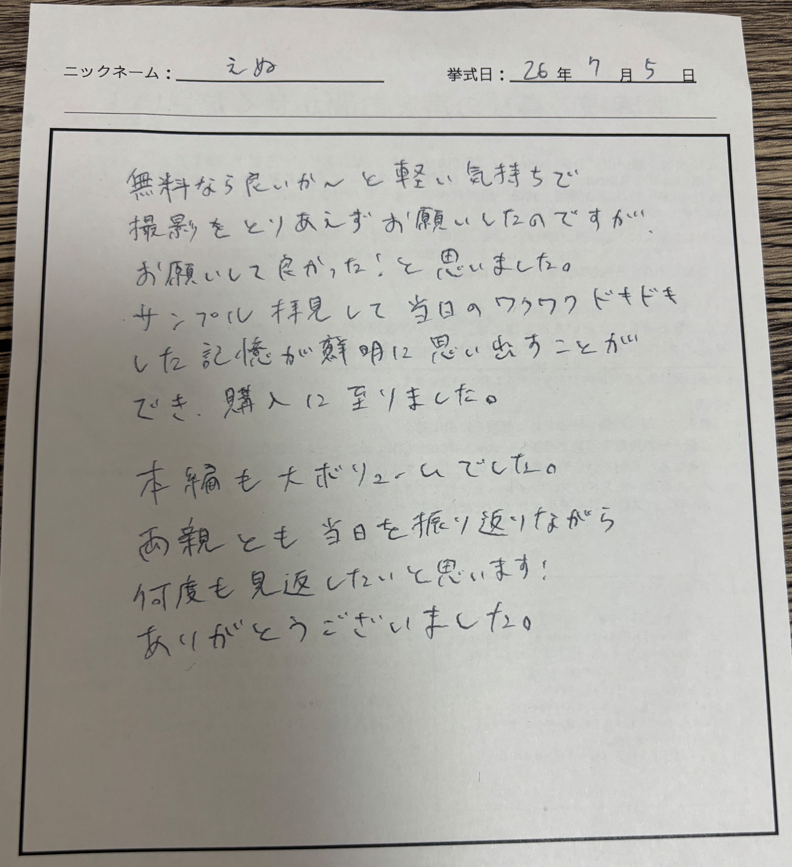 ニックネーム： えぬ 挙式日： 26 年 7 月 5 日
無料なら良いか〜と軽い気持ちで
撮影をとりあえずお願いしたのですが、
お願いして良かった！と思いました。
サンプル拝見して当日のワクワクドキドキ
した記憶が鮮明に思い出すことが
でき、購入に至りました。
本編も大ボリュームでした。
両親とも当日を振り返りながら
何度も見返したいと思います！
ありがとうございました。